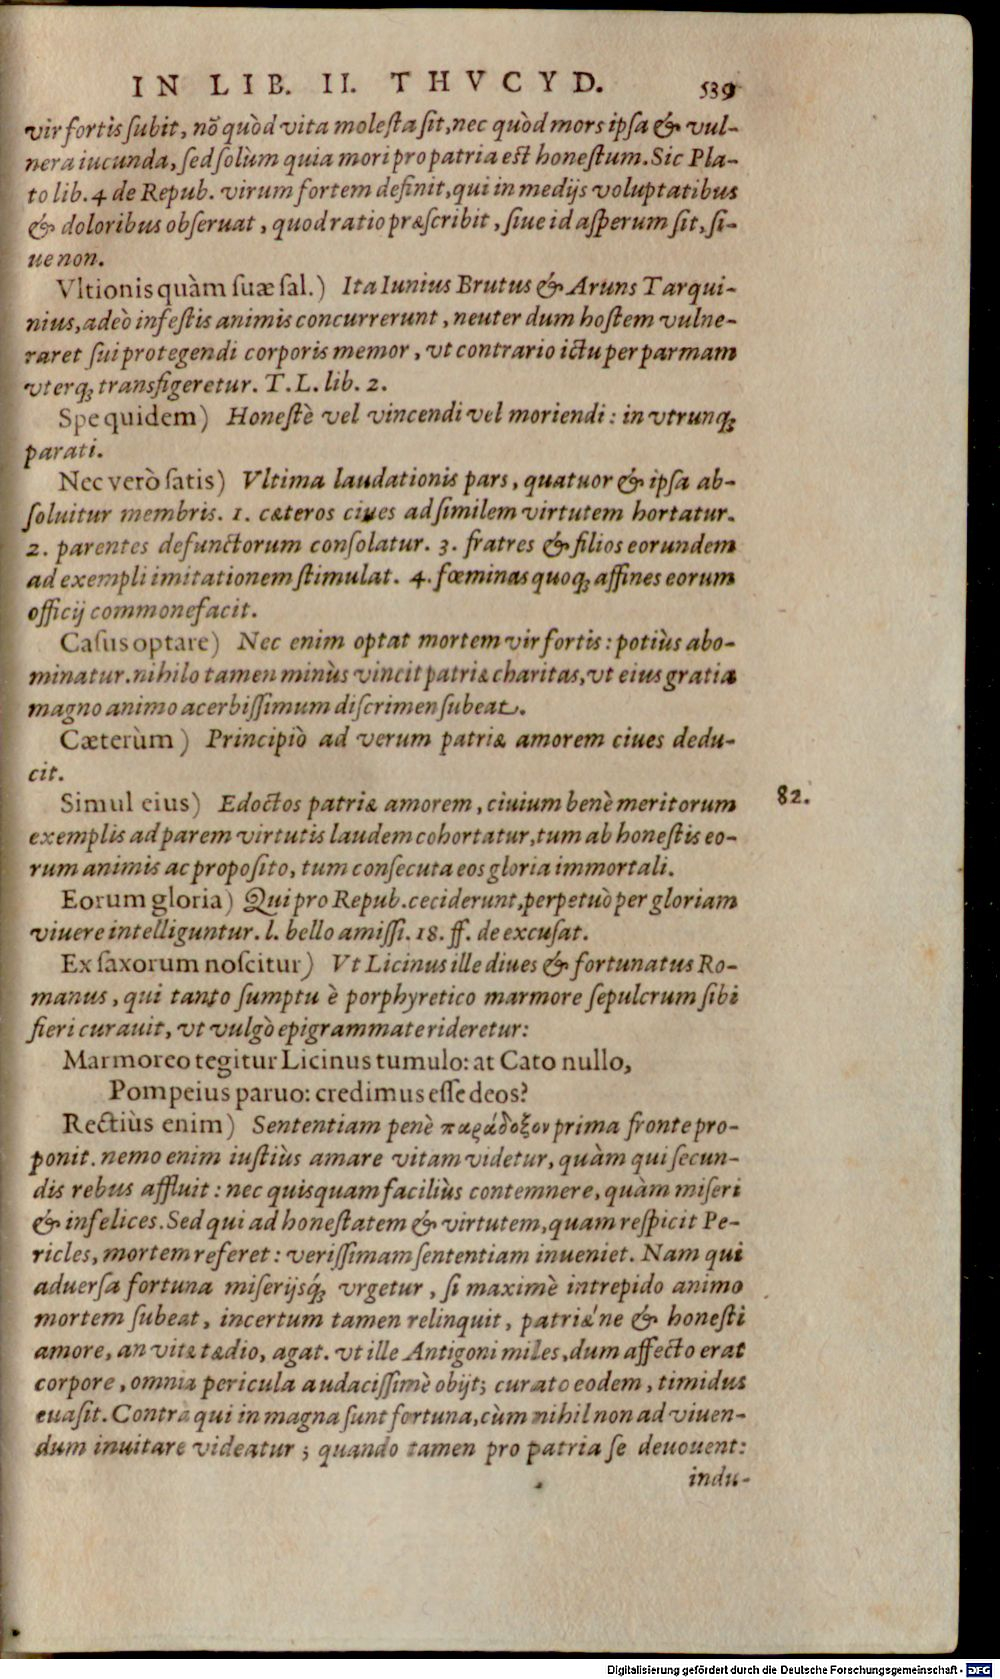 IN LIB. II. THVCYD. 539
vir fortis subit, nõ quòd vita molesta sit, nec quòd mors ipsa & vul-
nera iucunda, sed solùm quia mori pro patria est honestum. Sic Pla-
to lib. 4 de Repub. virum fortem definit, qui in medijs voluptatibus
& doloribus obseruat, quod ratio præscribit, siue id asperum sit, si-
ue non.
Vltionis quàm suæ sal.) Ita Iunius Brutus & Aruns Tarqui-
nius, adeò infestis animis concurrerunt, neuter dum hostem vulne-
raret sui protegendi corporis memor, vt contrario ictu per parmam
vterq; transfigeretur. T. L. lib. 2.
Spe quidem) Honestè vel vincendi vel moriendi: in vtrunq;
parati.
Nec verò satis) Vltima laudationis pars, quatuor & ipsa ab-
soluitur membris. 1. cæteros ciues ad similem virtutem hortatur.
2. parentes defunctorum consolatur. 3. fratres & filios eorundem
ad exempli imitationem stimulat. 4. fœminas quoq; affines eorum
officij commonefacit.
Casus optare) Nec enim optat mortem vir fortis: potiùs abo-
minatur. nihilo tamen minùs vincit patriæ charitas, vt eius gratia
magno animo acerbissimum discrimen subeat.
Cæterùm) Principiò ad verum patriæ amorem ciues dedu-
cit.
Simul eius) Edoctos patriæ amorem, ciuium benè meritorum 82.
exemplis ad parem virtutis laudem cohortatur, tum ab honestis eo-
rum animis ac proposito, tum consecuta eos gloria immortali.
Eorum gloria) Qui pro Repub. ceciderunt, perpetuò per gloriam
viuere intelliguntur. l. bello amissi. 18. ff. de excusat.
Ex saxorum noscitur) Vt Licinus ille diues & fortunatus Ro-
manus, qui tanto sumptu è porphyretico marmore sepulcrum sibi
fieri curauit, vt vulgò epigrammate rideretur:
Marmoreo tegitur Licinus tumulo: at Cato nullo,
Pompeius paruo: credimus esse deos?
Rectiùs enim) Sententiam penè παράδοξον prima fronte pro-
ponit. nemo enim iustiùs amare vitam videtur, quàm qui secun-
dis rebus affluit: nec quisquam faciliùs contemnere, quàm miseri
& infelices. Sed qui ad honestatem & virtutem, quam respicit Pe-
ricles, mortem referet: verissimam sententiam inueniet. Nam qui
aduersa fortuna miserijsq́; vrgetur, si maximè intrepido animo
mortem subeat, incertum tamen relinquit, patriæ'ne & honesti
amore, an vitæ tædio, agat. vt ille Antigoni miles, dum affecto erat
corpore, omnia pericula audacissimè obijt; curato eodem, timidus
euasit. Contrà qui in magna sunt fortuna, cùm nihil non ad viuen-
dum inuitare videatur; quando tamen pro patria se deuouent:
indu-
Digitalisierung gefördert durch die Deutsche Forschungsgemeinschaft - DFG